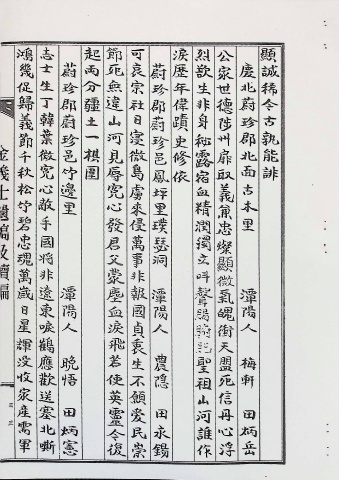 顯誠稀今古孰能誹
慶北蔚珍郡北面古本里 潭陽人 梅軒 田炳岳
公家世德陟州扉取義兼忠燦顯微氣魄衝天盟死信丹心浮
烈歎生非身秘露宿血精潤獨立呼聲賜 聖祖山河誰作
淚歷年偉蹟史修依
蔚珍郡蔚珍邑鳳坪里璞瑟洞 潭陽人 農隱 田永錫
可哀宗社日寢微島虜來侵萬事非報國貞衷生不願愛民崇
節死無違山河見辱寃心發君父蒙塵血淚飛若使英靈今復
起兩分疆土一棋圍
蔚珍郡蔚珍邑竹邊里 潭陽人 晩悟 田炳憲
志士生丁韓葉微寃心敵手國將非遠東唳鶴應歡送塞北嘶
鴻幾促歸義節千秋松竹碧忠魂萬歲日星輝没收家産需軍
金義士遺稿及續編